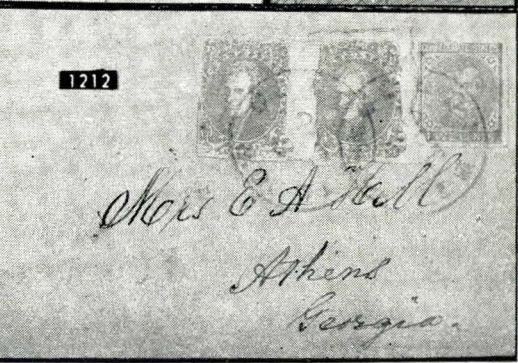 1212
Mrs E A Hall
Athens
Georgia.